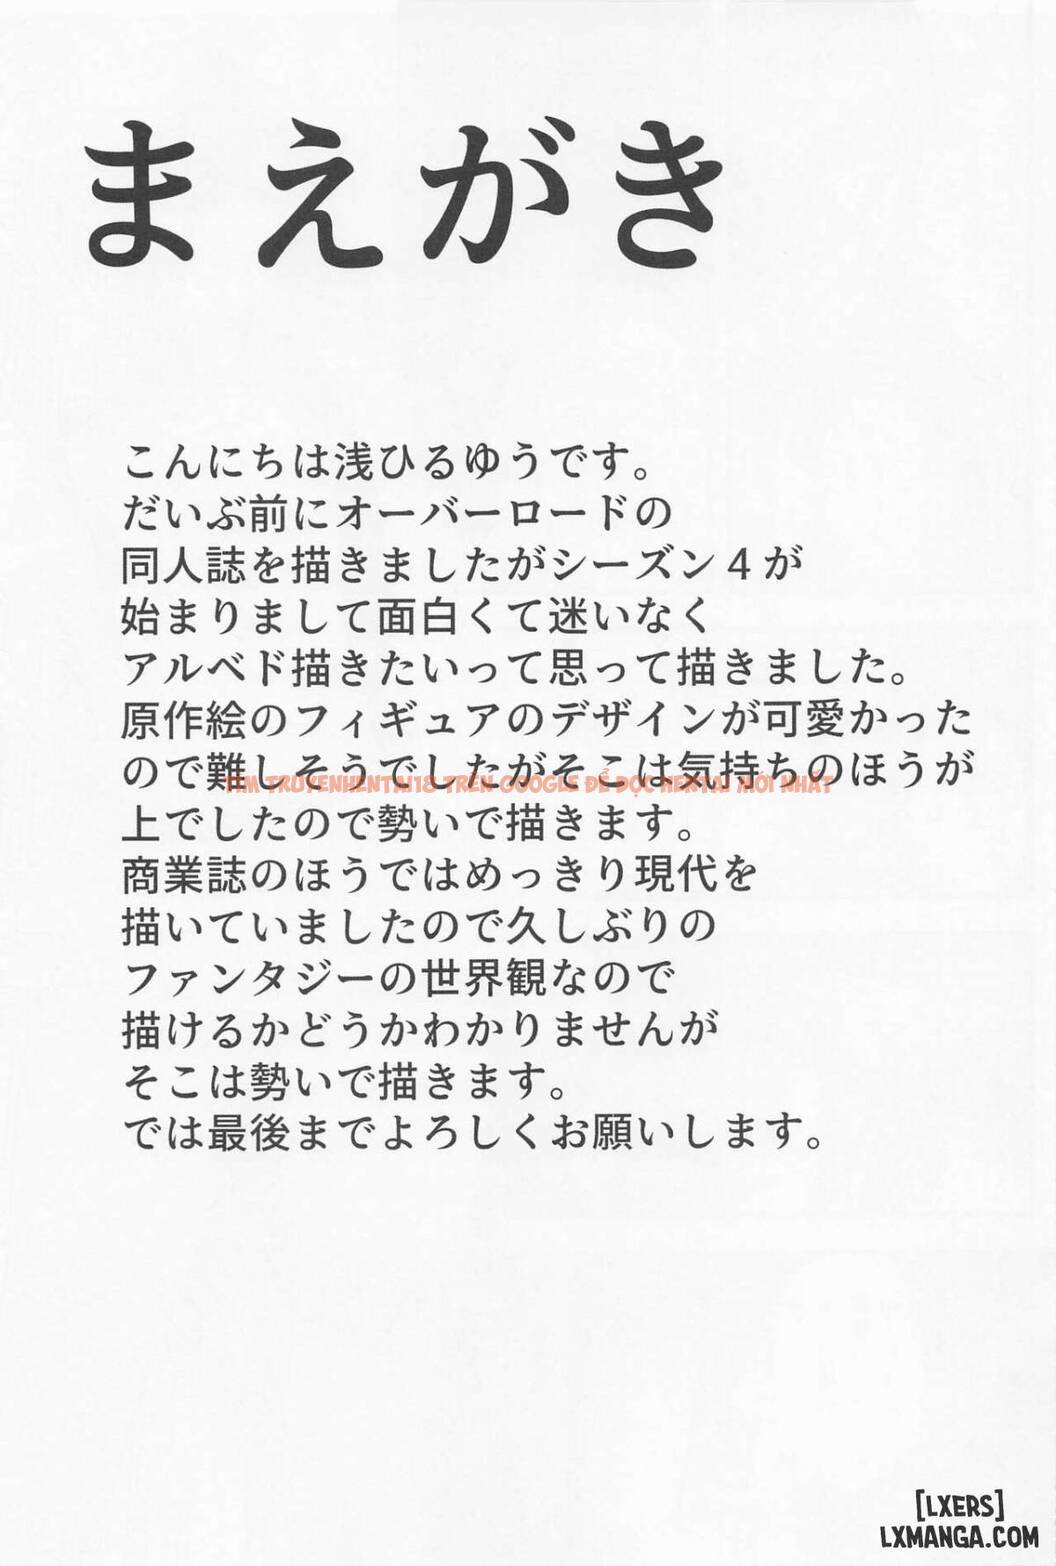 まえがき
こんにちは浅ひるゆうです。
だいぶ前にオーバーロードの
同人誌を描きましたがシーズン４が
始まりまして面白くて迷いなく
アルベド描きたいって思って描きました。
原作絵のフィギュアのデザインが可愛かった
ので難しそうでしたがそこは気持ちのほうが
TÌM TRUYENHENTAI18 TRÊN GOOGLE ĐỂ ĐỌC HENTAI MỚI NHẤT
上でしたので勢いで描きます。
商業誌のほうではめっきり現代を
描いていましたので久しぶりの
ファンタジーの世界観なので
描けるかどうかわかりませんが
そこは勢いで描きます。
では最後までよろしくお願いします。
[LXERS]
LXMANGA.COM